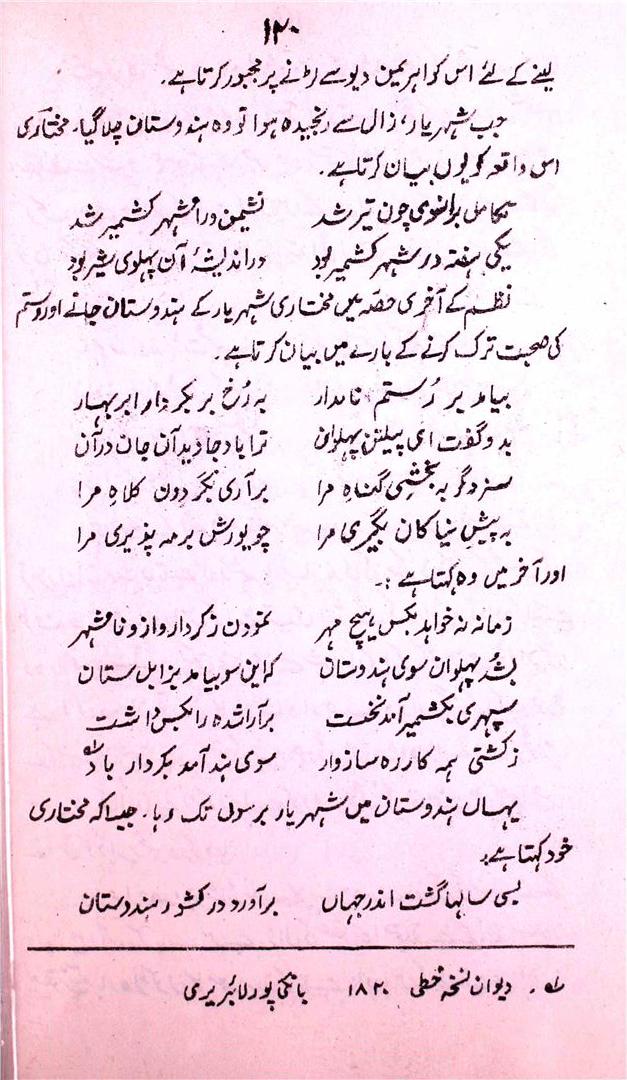 ۱۲۰
لینے کے لئے اس کو اہریمن دیو سے لڑنے پر مجبور کرتا ہے۔
جب شہریار، زال سے رنجیدہ ہوا تو وہ ہندوستان چلا گیا۔ مختاری
اس واقعہ کو یوں بیان کرتا ہے۔
چون تیر شد نشیمن ورا شہر کشمیر شد
یکی ہفتہ در شہر کشمیر بود در اندیشۂ آن پہلوی شیر بود
نظم کے آخری حصّہ میں مختاری شہریار کے ہندوستان جانے اور رستم
کی صحبت ترک کرنے کے بارے میں بیان کرتا ہے۔
بیامد بر رُستم نامدار بہ رُخ بر بکردار ابر بہار
بدو گفت ای پیلتن پہلوان ترا باد جاوید آن جان در آن
سزد گر بہ بخشی گناہِ مرا برآری بگردون کلاہِ مرا
بہ پیشِ نیاکان بگیری مرا چو پورش بر مہ پذیری مرا
اور آخر میں وہ کہتا ہے :۔
زمانہ نہ خواہد بکس ہیچ مہر نمودن ز کردار واژونا مہر
بشُد پہلوان سوی ہندوستان کہ این سو بیامد بزابلستان
سپہری بکشمیر آمد نخست بر
زکشتی ہمہ کار رہ سازوار سوی ہند آمد بکردار باد ؎۱
یہاں ہندوستان میں شہریار برسوں تک رہا۔ جیسا کہ مختاری
خود کہتا ہے :
بسی سالہا گشت اندر جہاں برآورد در کشور ہندوستان
؎۱۔ دیوان نسخہ خطی ۱۸۲۰ بانکی پور لائبریری